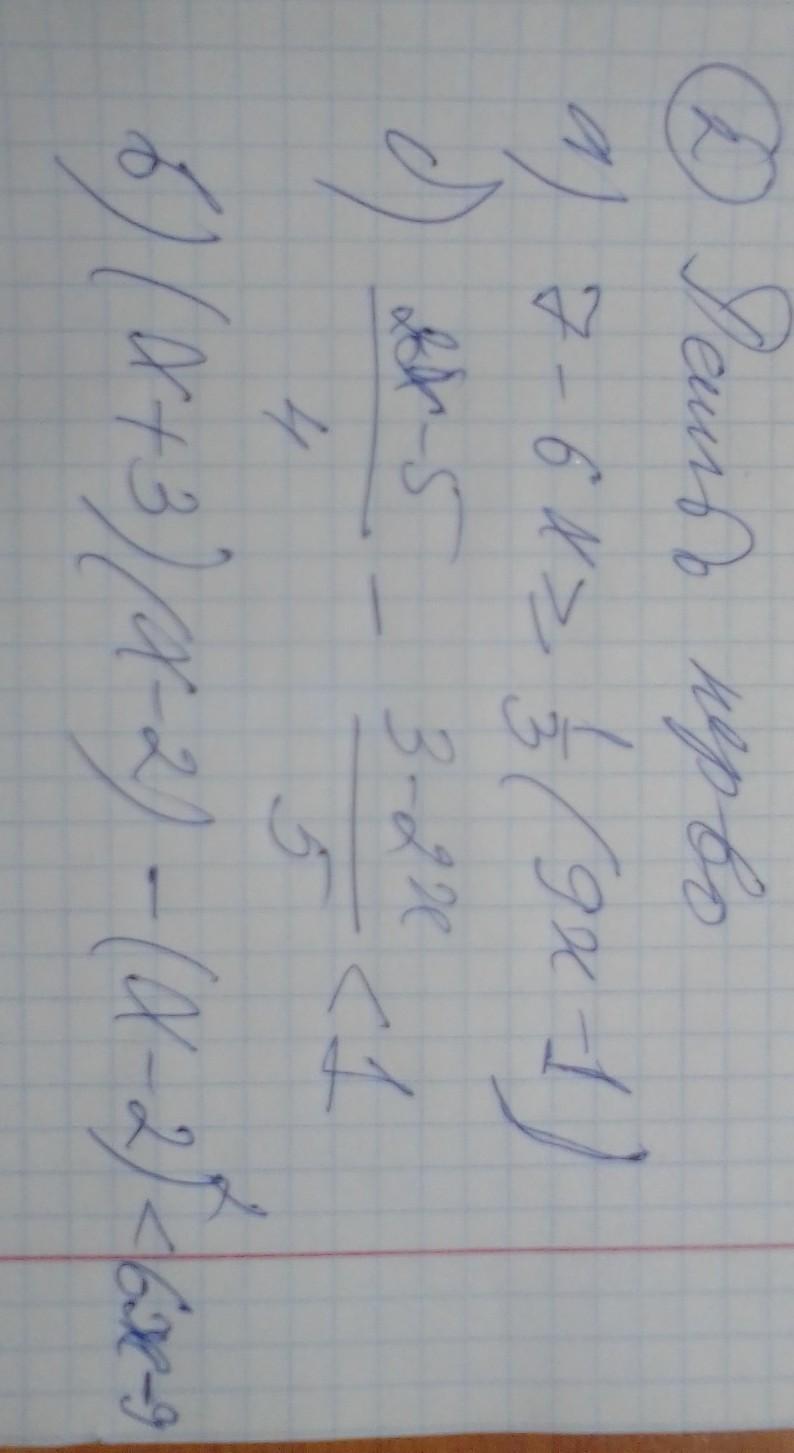 ② Решить нер-во
а) 7 - 6x ≥ 1/3 (9x - 1)
с) (2x - 5)/4 - (3 - 2x)/5 < 1
б) (x + 3)(x - 2) - (x - 2)² < 6x - 9